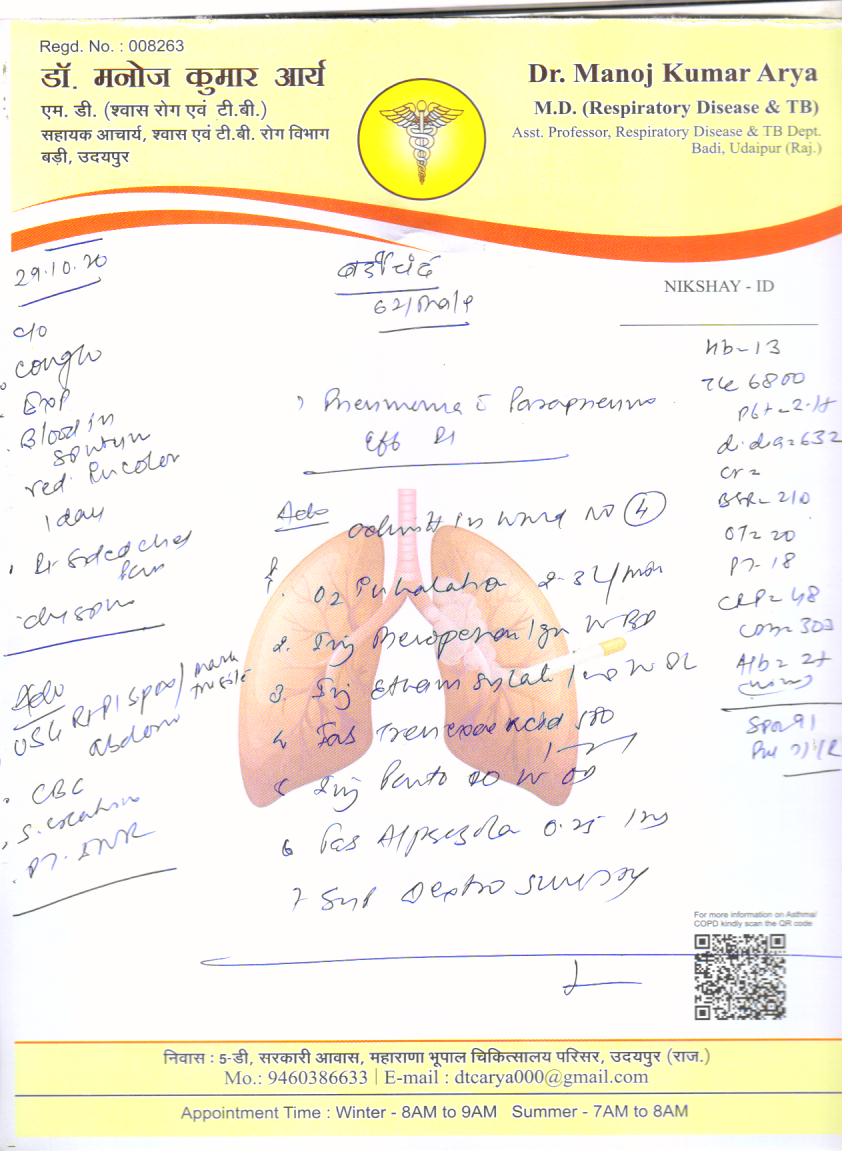 Regd. No. : 008263
डॉ. मनोज कुमार आर्य
एम. डी. (श्वास रोग एवं टी.बी.)
सहायक आचार्य, श्वास एवं टी.बी. रोग विभाग
बड़ी, उदयपुर
Dr. Manoj Kumar Arya
M.D. (Respiratory Disease & TB)
Asst. Professor, Respiratory Disease & TB Dept.
Badi, Udaipur (Raj.)
29.10.20
62/male
NIKSHAY - ID
c/o
cough
Exp
Blood in
sputum
red in color
1 day
Rt sided chest
pain
Adv
USG
abdomen
CBC
S. creatinine
PT. INR
Pneumonia c Parapneumo
Eff Rt
Adv admitt in ward no 4
1. O2 Inhalation 2-3 L/min
2. Inj Meropenem 1gm IV BD
3. Inj Ethamsylate
4 Tab Tranexa acid 500
5 Inj Panto 40 IV OD
6 Tab Alprazola 0.25
7 Syp Dextro
Hb-13
TLC 6800
Plt-2.17
d.di
cr=
OT= 20
PT-18
CRP= 48
Alb= 2+
SpO2 91
For more information on Asthma/
COPD kindly scan the QR code
निवास : 5-डी, सरकारी आवास, महाराणा भूपाल चिकित्सालय परिसर, उदयपुर (राज.)
Mo.: 9460386633 | E-mail : dtcarya000@gmail.com
Appointment Time : Winter - 8AM to 9AM Summer - 7AM to 8AM